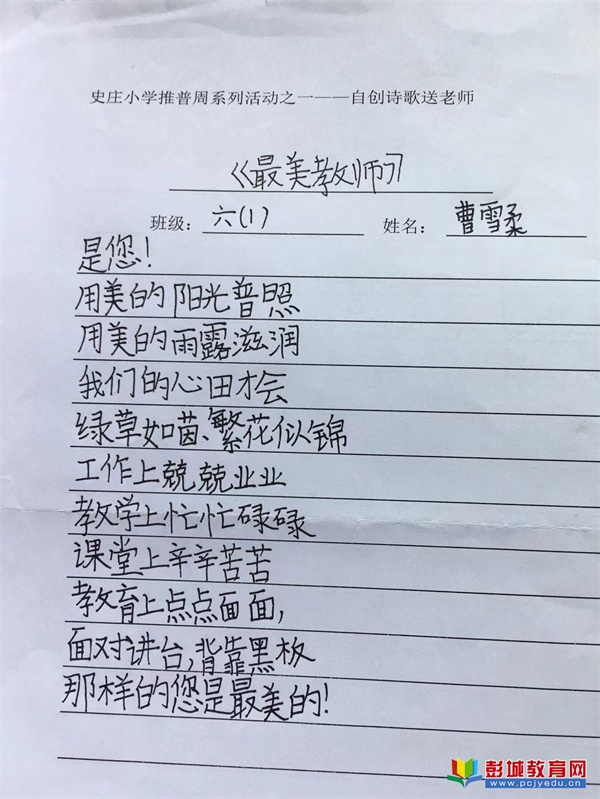 史庄小学推普周系列活动之一——自创诗歌送老师
《最美教师》
班级：六(1) 姓名：曹雪柔
是您！
用美的阳光普照
用美的雨露滋润
我们的心田才会
绿草如茵、繁花似锦
工作上兢兢业业
教学上忙忙碌碌
课堂上辛辛苦苦
教育上点点面面，
面对讲台，背靠黑板
那样的您是最美的！
彭城教育网
www.pcjyedu.cn